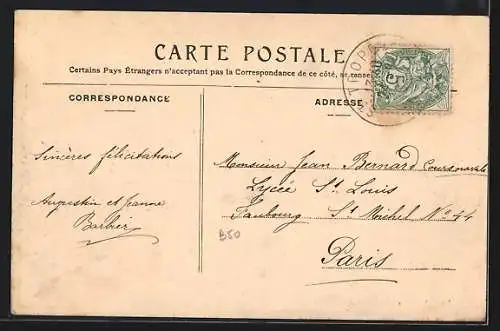 CARTE POSTALE
Certains Pays Étrangers n'acceptant pas la Correspondance de ce côté, se
CORRESPONDANCE
ADRESSE
5
Sincères félicitations
Augustin et Jeanne
Barbier
Monsieur Jean Bernard
Lycée St. Louis
Faubourg St. Michel No 44
Paris
B50